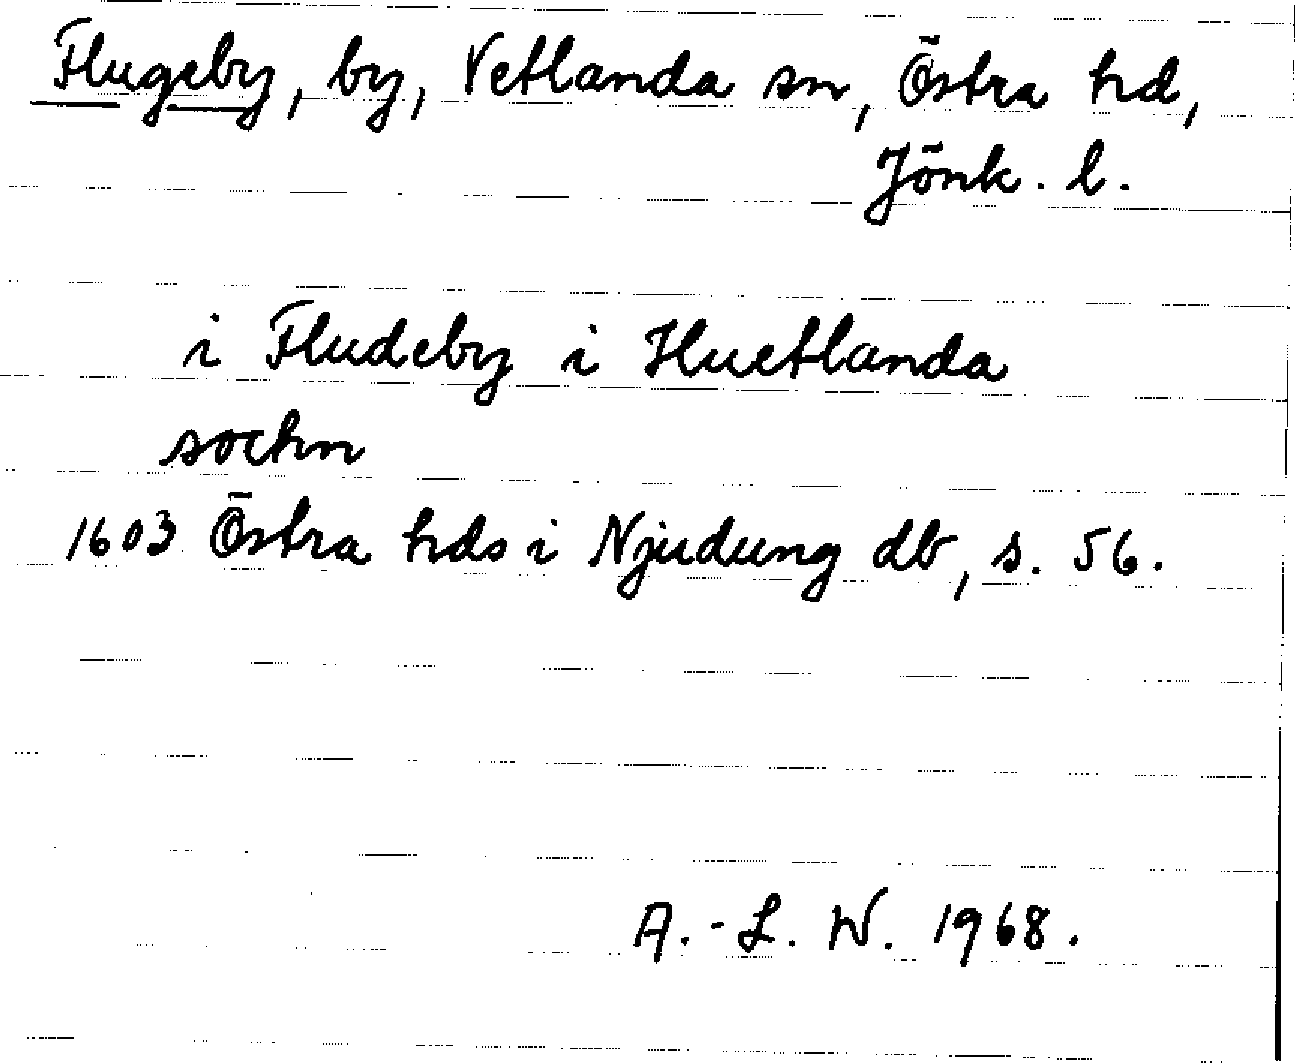 Flugeby, by, Vetlanda sn, Östra hd,
Jönk. l.
i Fludeby i Huetlanda
sochn
1603 Östra hds i Njudung db, s. 56.
A.-L. W. 1968.